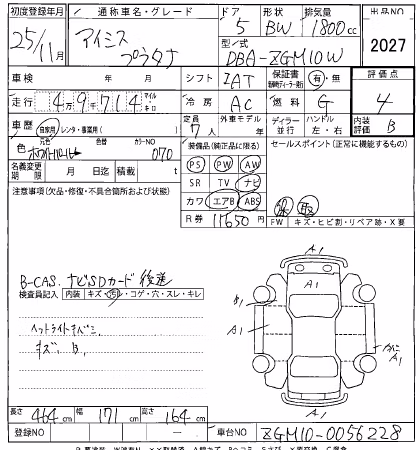 初度登録年月 通称車名・グレード ドア 形状 排気量 出品NO
25/11月 アイシス プラタナ 5 BW 1800cc 2027
型/式
DBA-ZGM10W
車検 年 月 シフト IAT 保証書 有・無 評価点
走行 4万9千714 マイル キロ 冷房 AC 燃料 G 4
車歴 自家用 レンタ・事業用( ) 定員 7人 外車モデル 年 ディーラー 並行 ハンドル 左・右 内装評価 B
色 元色 色替 カラーNO 070 装備品(純正品に限る) セールスポイント(正常に機能するもの)
名義変更期限 月 日迄 積載 t PS PW AW
注意事項(欠品・修復・不具合箇所および状態) SR TV ナビ
カワ エアB ABS
R券 11650円 FW キズ・ヒビ割・リペア跡・X要
B-CAS. ナビSDカード 後送
検査員記入 内装 キズ・汚レ・コゲ・穴・スレ・キレ
ヘットライト
キズ. B.
A1
A1
B1
A1
A1
A1
長さ 464cm 幅 171cm 高さ 164cm
登録NO 車台NO ZGM10-0056228